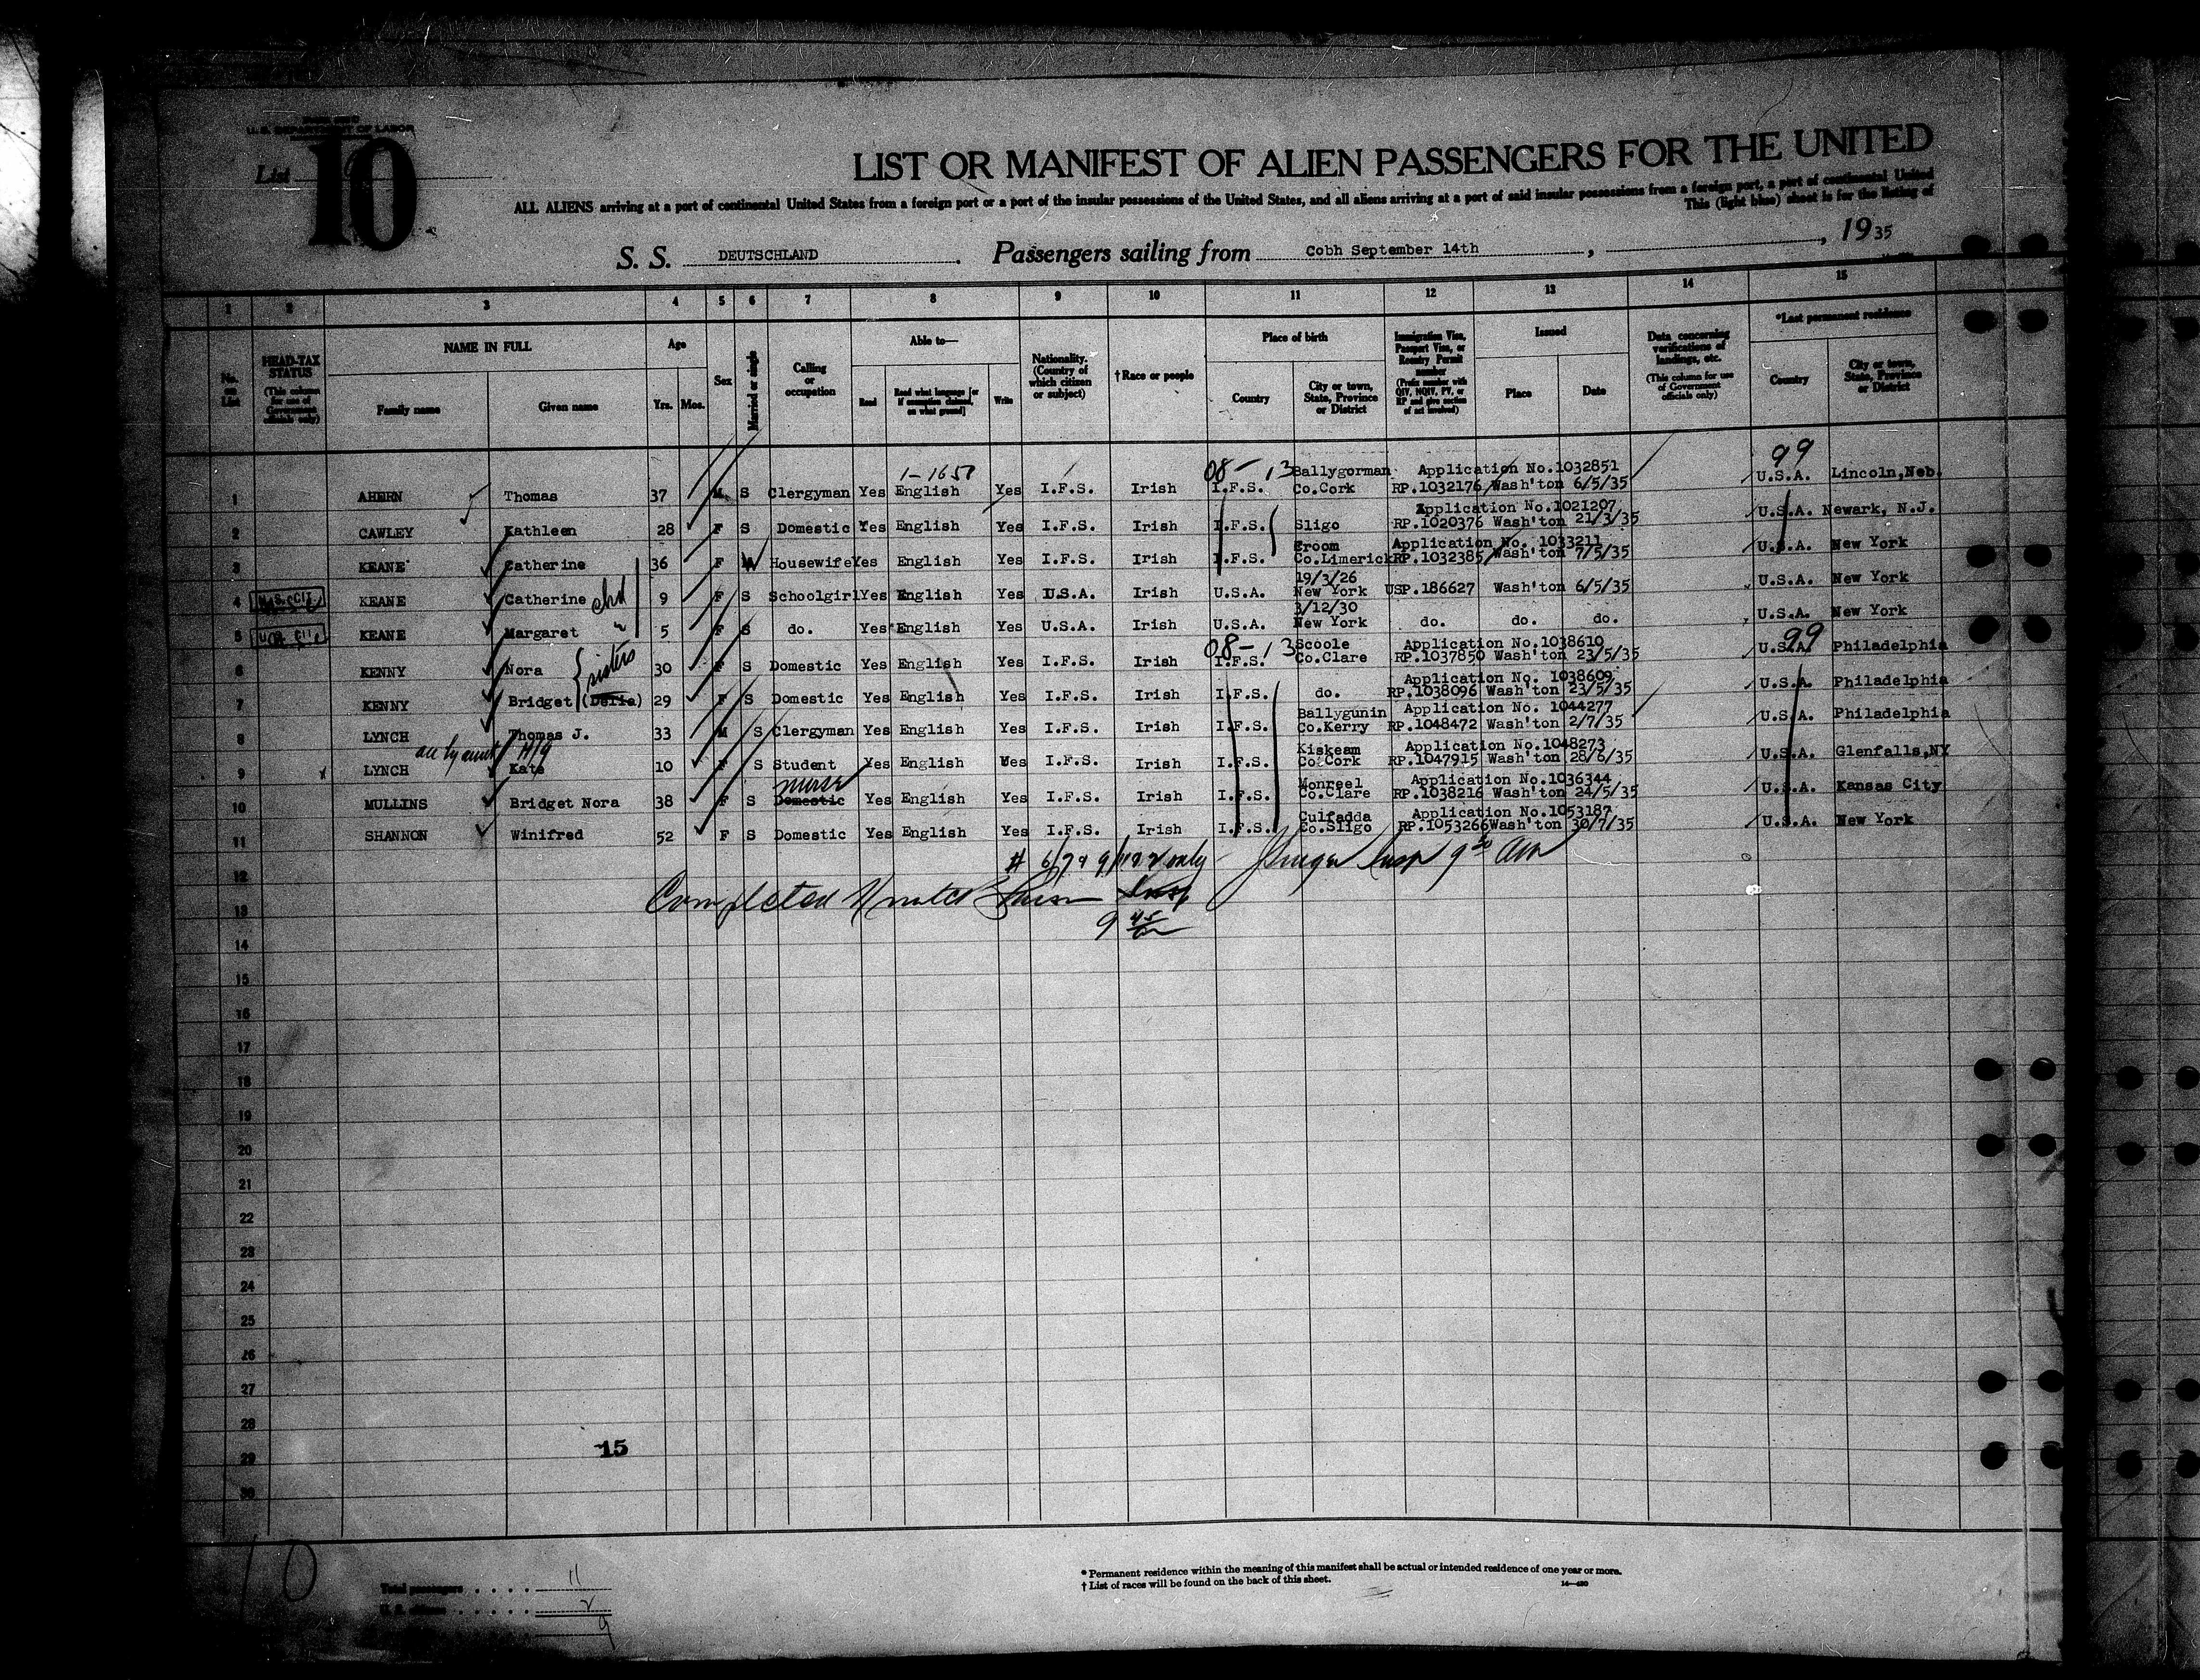 U. S. DEPARTMENT OF LABOR
List 10
LIST OR MANIFEST OF ALIEN PASSENGERS FOR THE UNITED
ALL ALIENS arriving at a port of continental United States from a foreign port or a port of the insular possessions of the United States, and all aliens arriving at a port of said insular possessions from a foreign port, a port of continental United
This (light blue) sheet is for the listing of
S. S. DEUTSCHLAND. Passengers sailing from Cobh September 14th, , 1935
1 2 3 4 5 6 7 8 9 10 11 12 13 14 15
No. on List
HEAD-TAX STATUS (This column for use of Government officials only)
NAME IN FULL
Family name Given name
Age
Yrs. Mos.
Sex
Married or single
Calling or occupation
Able to—
Read Read what language [or if exemption claimed, on what ground] Write
Nationality. (Country of which citizen or subject)
† Race or people
Place of birth
Country City or town, State, Province or District
Immigration Visa, Passport Visa, or Reentry Permit number (Prefix number with QIV, NQIV, PV, or RP and give section of act involved)
Issued
Place Date
Data concerning verifications of landings, etc. (This column for use of Government officials only)
*Last permanent residence
Country City or town, State, Province or District
1-1651 08-13 Ballygorman Application No.1032851 99
1 AHERN Thomas 37 M S Clergyman Yes English Yes I.F.S. Irish I.F.S. Co.Cork RP.1032176 Wash'ton 6/5/35 U.S.A. Lincoln,Neb.
Application No.1021207
2 CAWLEY Kathleen 28 F S Domestic Yes English Yes I.F.S. Irish I.F.S. Sligo RP.1020376 Wash'ton 21/3/35 U.S.A. Newark, N.J.
Application No. 1033211
3 KEANE Catherine 36 F M Housewife Yes English Yes I.F.S. Irish I.F.S. Co.Limerick RP.1032385 Wash'ton 7/5/35 U.S.A. New York
19/3/26
4 KEANE Catherine chd 9 F S Schoolgirl Yes English Yes U.S.A. Irish U.S.A. New York USP.186627 Wash'ton 6/5/35 U.S.A. New York
3/12/30
5 KEANE Margaret " 5 F S do. Yes English Yes U.S.A. Irish U.S.A. New York do. do. do. U.S.A. New York
08-13 Scoole Application No.1038610 99
6 KENNY Nora sisters 30 F S Domestic Yes English Yes I.F.S. Irish I.F.S. Co.Clare RP.1037850 Wash'ton 23/5/35 U.S.A. Philadelphia
Application No. 1038609
7 KENNY Bridget (Delia) 29 F S Domestic Yes English Yes I.F.S. Irish I.F.S. do. RP.1038096 Wash'ton 23/5/35 U.S.A. Philadelphia
Ballygunin Application No. 1044277
8 LYNCH Thomas J. 33 M S Clergyman Yes English Yes I.F.S. Irish I.F.S. Co.Kerry RP.1048472 Wash'ton 2/7/35 U.S.A. Philadelphia
Kiskeam Application No.1048273
9 LYNCH Kate 10 F S Student Yes English Yes I.F.S. Irish I.F.S. Co.Cork RP.1047915 Wash'ton 28/6/35 U.S.A. Glenfalls,NY
nurse Monreel Application No.1036344
10 MULLINS Bridget Nora 38 F S Domestic Yes English Yes I.F.S. Irish I.F.S. Co.Clare RP.1038216 Wash'ton 24/5/35 U.S.A. Kansas City
Culfadda Application No.1053187
11 SHANNON Winifred 52 F S Domestic Yes English Yes I.F.S. Irish I.F.S. Co.Sligo RP.1053266 Wash'ton 30/7/35 U.S.A. New York
12 only
13 Completed
9 45
14
15
16
17
18
19
20
21
22
23
24
25
26
27
28
15
29
30
10
Total passengers . . . . . 11
U. S. citizens . . . . . 2
9
* Permanent residence within the meaning of this manifest shall be actual or intended residence of one year or more.
† List of races will be found on the back of this sheet.
14—430